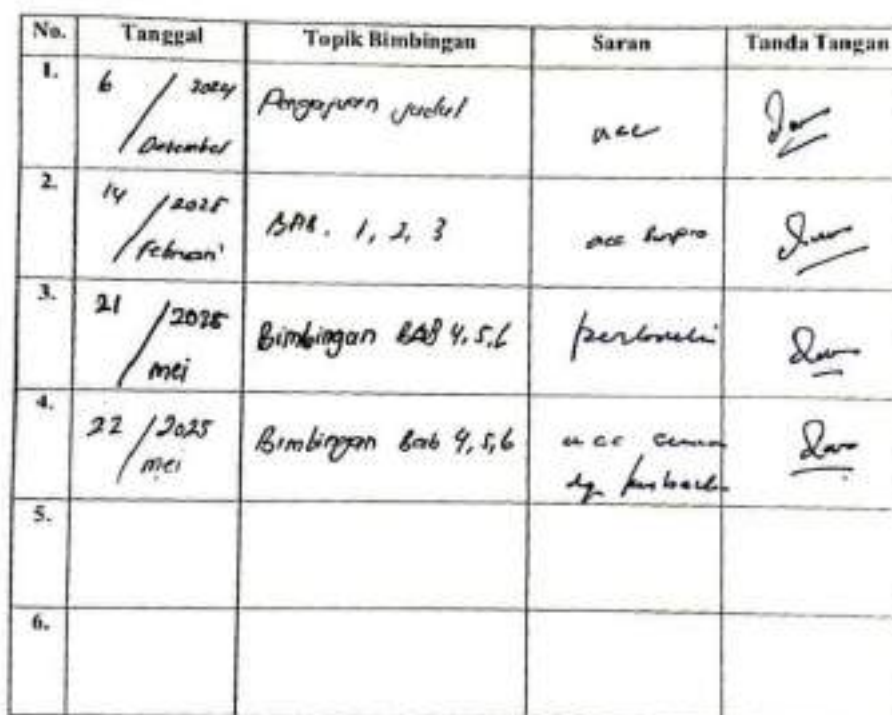 No. Tanggal Topik Bimbingan Saran Tanda Tangan
1. 6 / 2024 Desember Pengajuan judul acc
2. 14 / 2025 Februari BAB. 1, 2, 3 acc
3. 21 / 2025 mei Bimbingan BAB 4,5,6 perbaiki
4. 22 / 2025 mei Bimbingan Bab 4,5,6 acc
dg
5.
6.